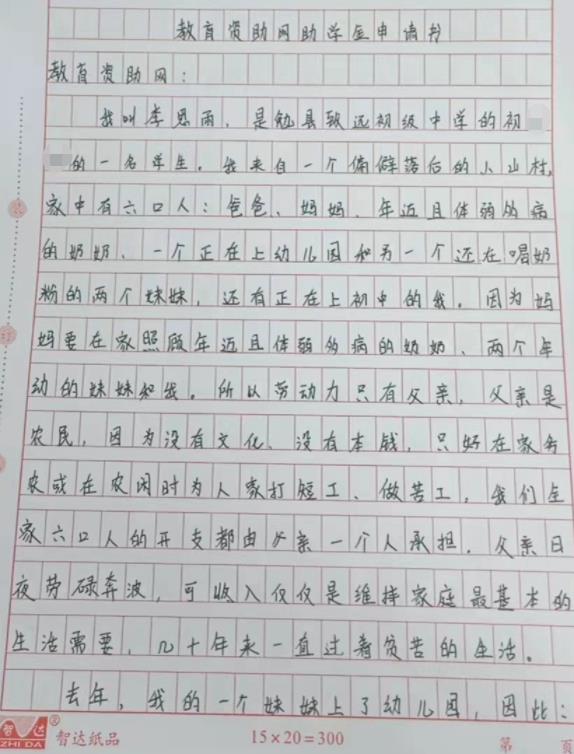 教育资助网助学金申请书
教育资助网：
我叫李思雨，是勉县致远初级中学的初
的一名学生。我来自一个偏僻落后的小山村，
家中有六口人：爸爸、妈妈、年迈且体弱多病
的奶奶、一个正在上幼儿园和另一个还在喝奶
粉的两个妹妹，还有正在上初中的我。因为妈
妈要在家照顾年迈且体弱多病的奶奶、两个年
幼的妹妹和我。所以劳动力只有父亲，父亲是
农民，因为没有文化、没有本钱，只好在家务
农或在农闲时为人家打短工、做苦工，我们全
家六口人的开支都由父亲一个人承担，父亲日
夜劳碌奔波，可收入仅仅是维持家庭最基本的
生活需要，几十年来一直过着贫苦的生活。
去年，我的一个妹妹上了幼儿园，因此：
智达 ZHI DA 智达纸品 15×20=300 第 页